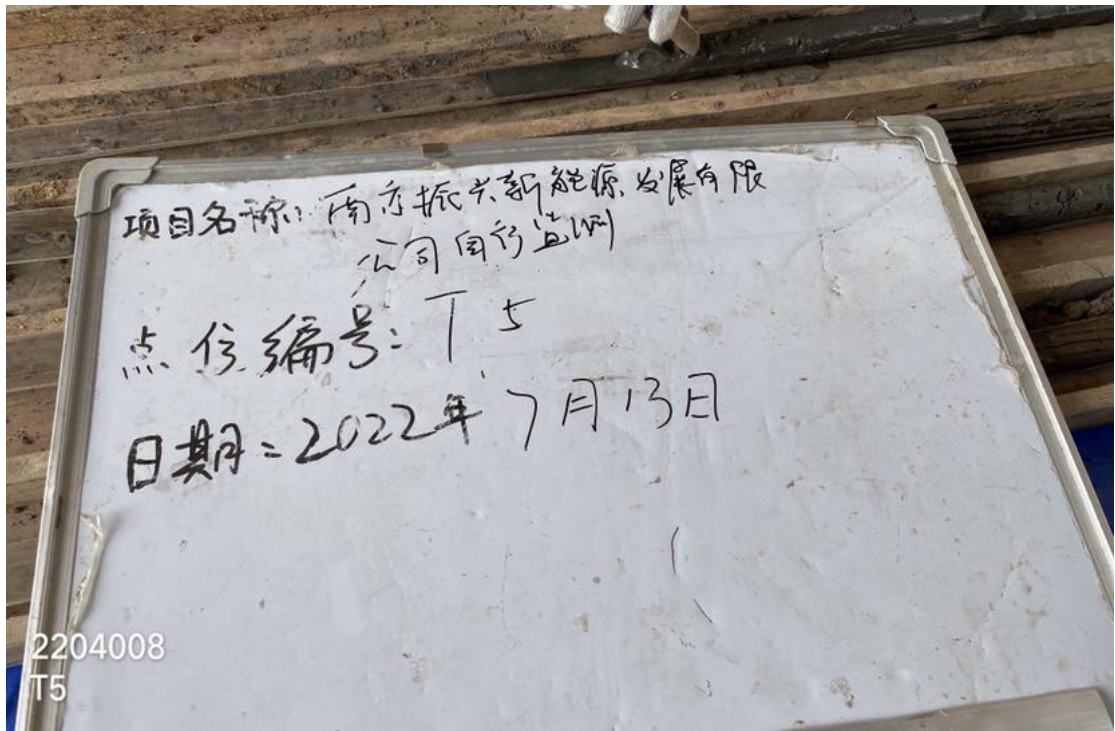 项目名称：南京振兴新能源发展有限
公司自行监测
点位编号：T5
日期：2022年7月13日
2204008
T5